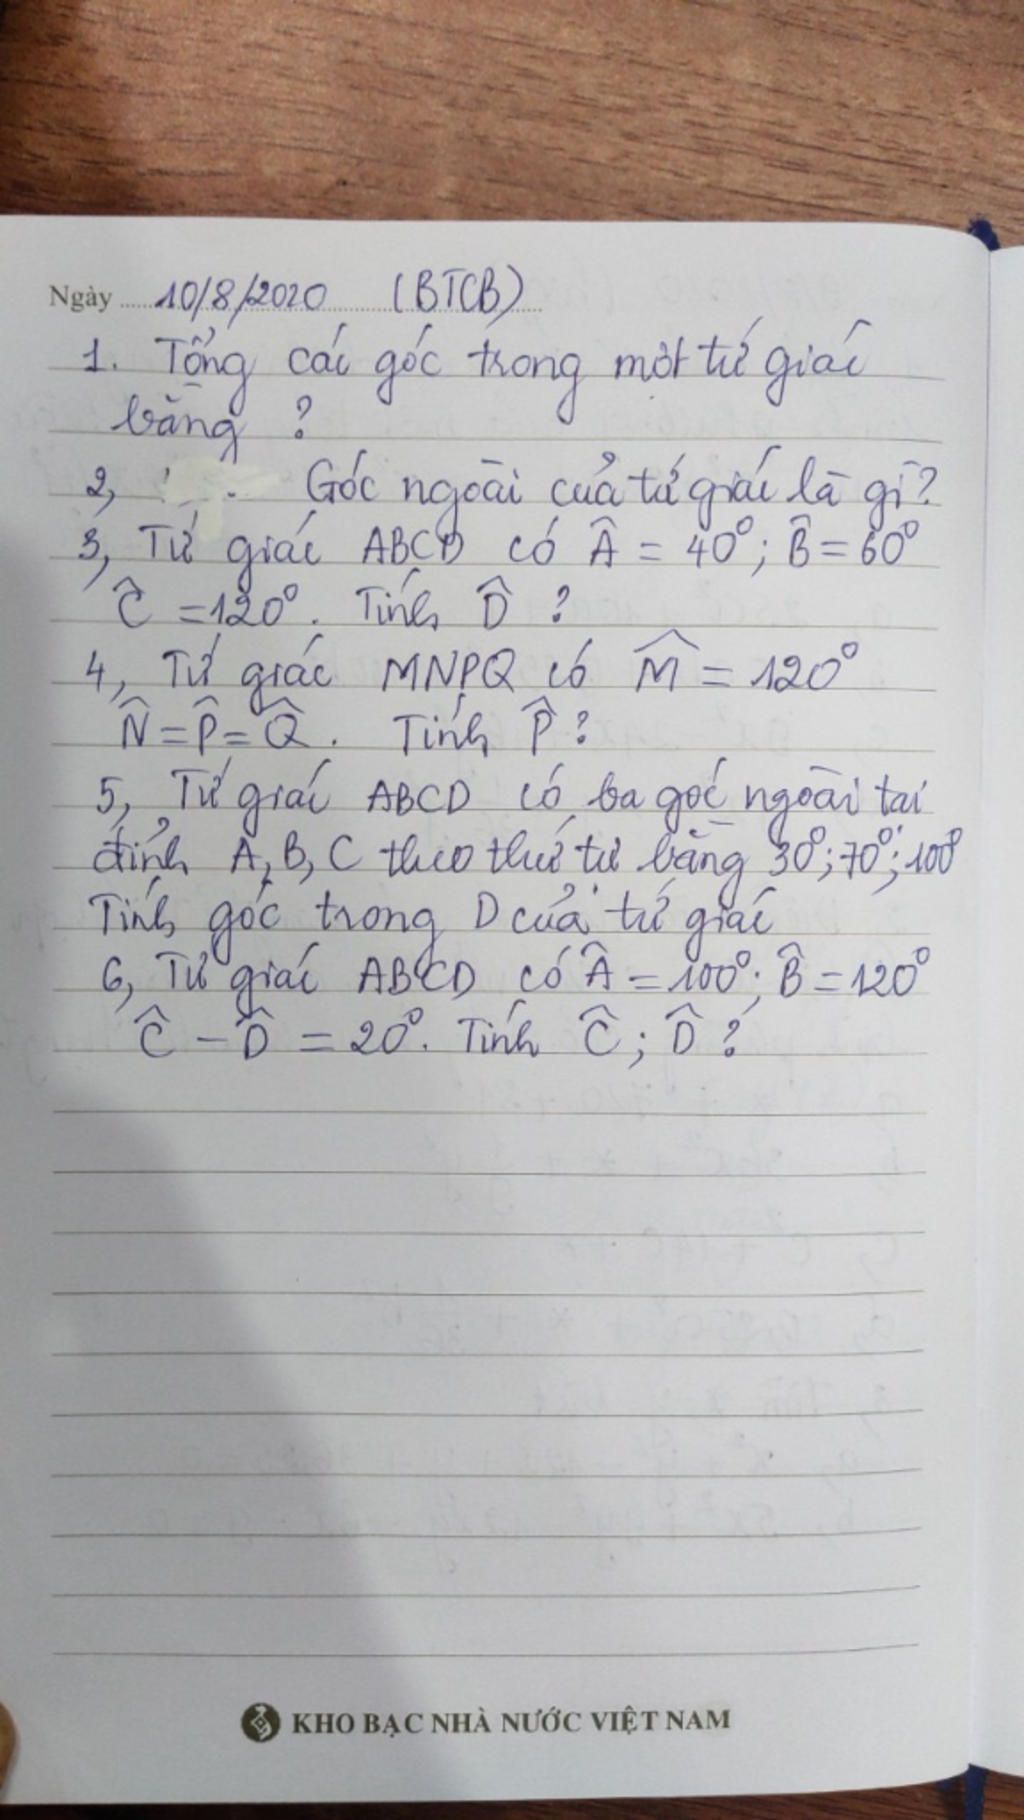 Ngày 10/8/2020 (BTCB)
1. Tổng các góc trong một tứ giác
bằng ?
2, Góc ngoài của tứ giác là gì?
3, Tứ giác ABCD có Â = 40°; B̂ = 60°
Ĉ = 120°. Tính D̂ ?
4, Tứ giác MNPQ có M̂ = 120°
N̂ = P̂ = Q̂. Tính P̂ ?
5, Tứ giác ABCD có ba góc ngoài tại
đỉnh A, B, C theo thứ tự bằng 30°; 70°; 100°
Tính góc trong D của tứ giác
6, Tứ giác ABCD có Â = 100°; B̂ = 120°
Ĉ - D̂ = 20°. Tính Ĉ; D̂ ?
KHO BẠC NHÀ NƯỚC VIỆT NAM